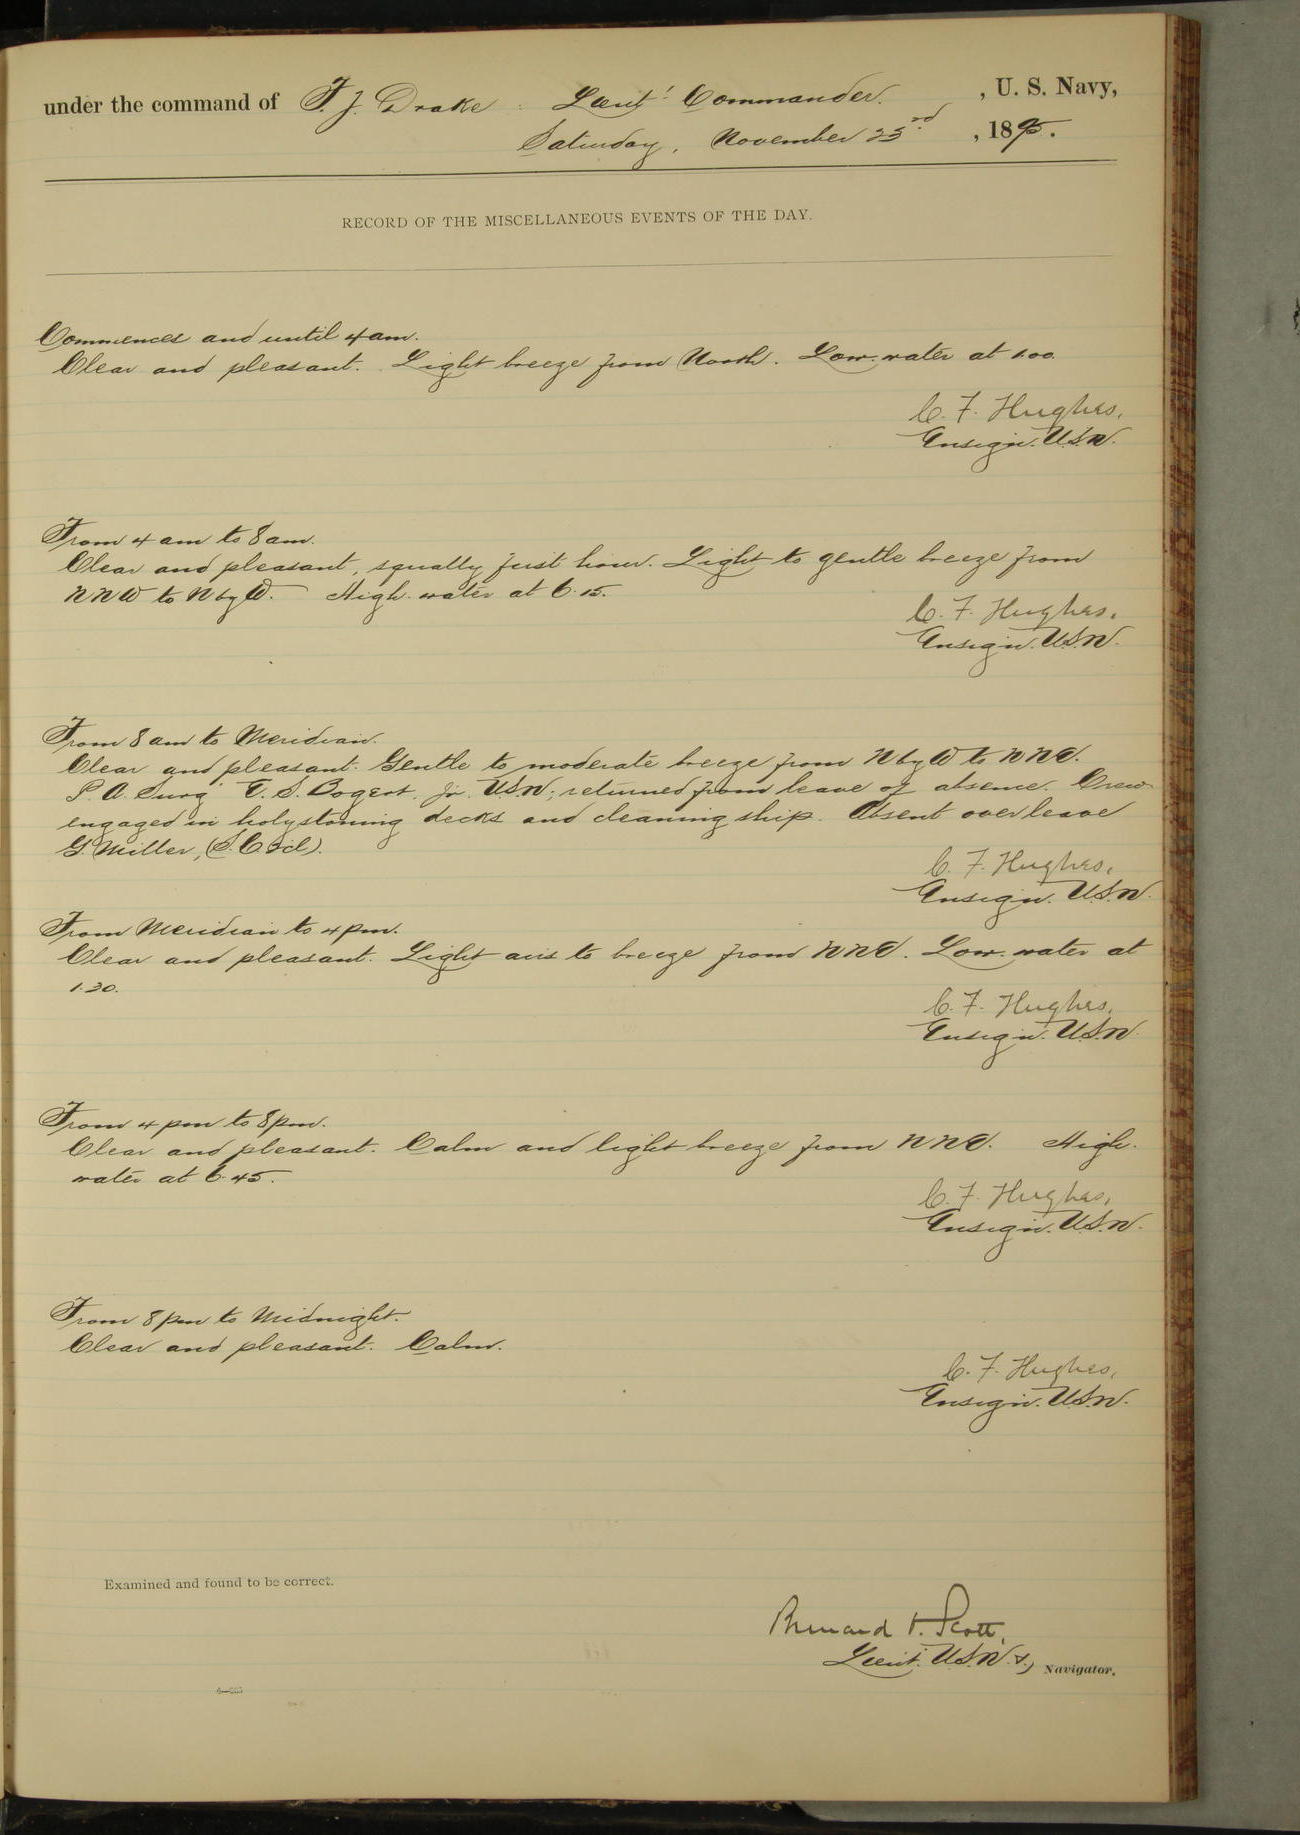 under the command of F. J. Drake. Lieut! Commander. , U. S. Navy,
Saturday, November 23rd , 1895.
RECORD OF THE MISCELLANEOUS EVENTS OF THE DAY.
Commences and until 4 am.
Clear and pleasant. Light breeze from North. Low water at 1.00
C. F. Hughes,
Ensign. U.S.N.
From 4 am to 8 am.
Clear and pleasant, squally first hour. Light to gentle breeze from
NNW to N by W. High water at 6.15.
C. F. Hughes,
Ensign. U.S.N.
From 8 am to Meridian.
Clear and pleasant. Gentle to moderate breeze from N by W to NNE.
P. A. Surg. E. S. Bogert, Jr. U.S.N; returned from leave of absence. Crew
engaged in holystoning decks and cleaning ship. Absent over leave
G. Miller,
C. F. Hughes,
Ensign. U.S.N.
From Meridian to 4 pm.
Clear and pleasant. Light airs to breeze from NNE. Low water at
1.30.
C. F. Hughes,
Ensign. U.S.N.
From 4 pm to 8 pm.
Clear and pleasant. Calm and light breeze from NNE. High
water at 6.45.
C. F. Hughes,
Ensign. U.S.N.
From 8 pm to Midnight.
Clear and pleasant. Calm.
C. F. Hughes,
Ensign. U.S.N.
Examined and found to be correct.
Bernard O. Scott,
Lieut. U.S.N. Navigator.